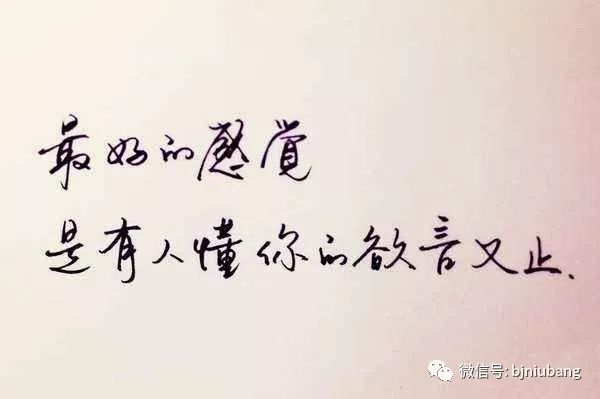 最好的感觉
是有人懂你的欲音又止.
微信号: bjniubang